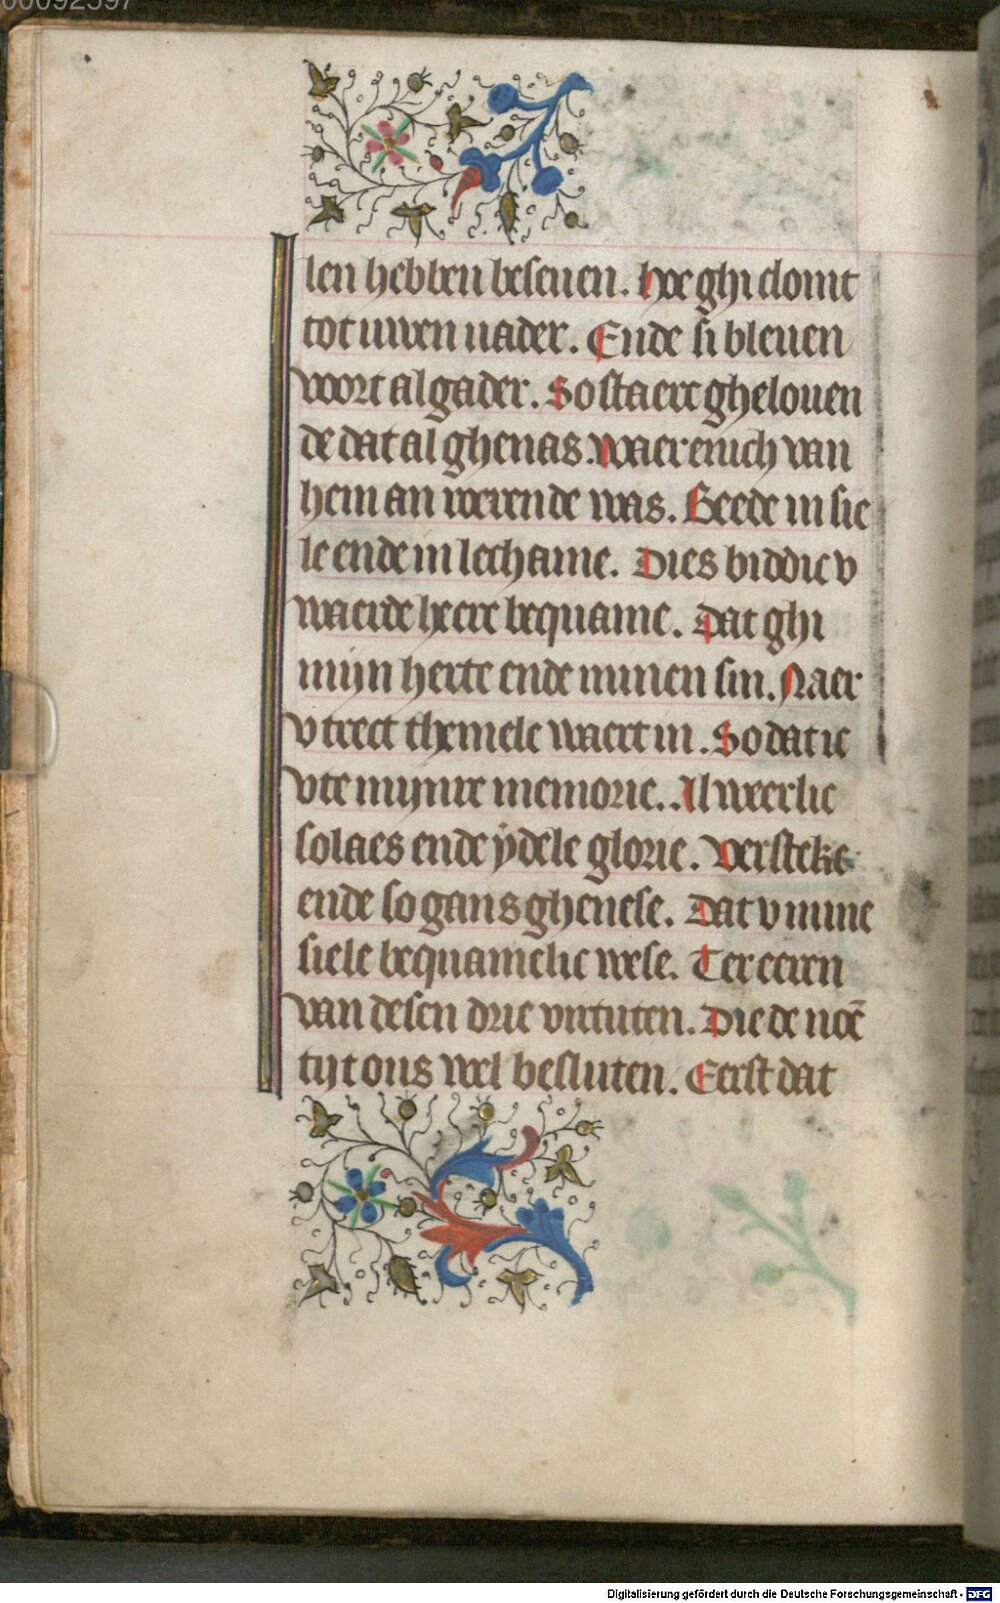 00092597
len hebben beseuen. Hoe ghi clomt
tot uwen uader. Ende si bleuen
voort algader. So staerc ghelouen
de dat al ghenas. Waer enich van
hem an werende was. Beede in sie
le ende in lechame. Dies biddic v
waerde heere bequame. Dat ghi
mijn herte ende minen sin. Naer
v trect themele waert in. So dat ic
vte mijnre memorie. Al weerlic
solaes ende ydele glorie. Versteke
ende so gans ghenese. Dat v mine
siele bequamelic wese. Ter eeren
van desen drie virtuten. Die de noē
tijt ons wel besluten. Eerst dat
Digitalisierung gefördert durch die Deutsche Forschungsgemeinschaft - DFG